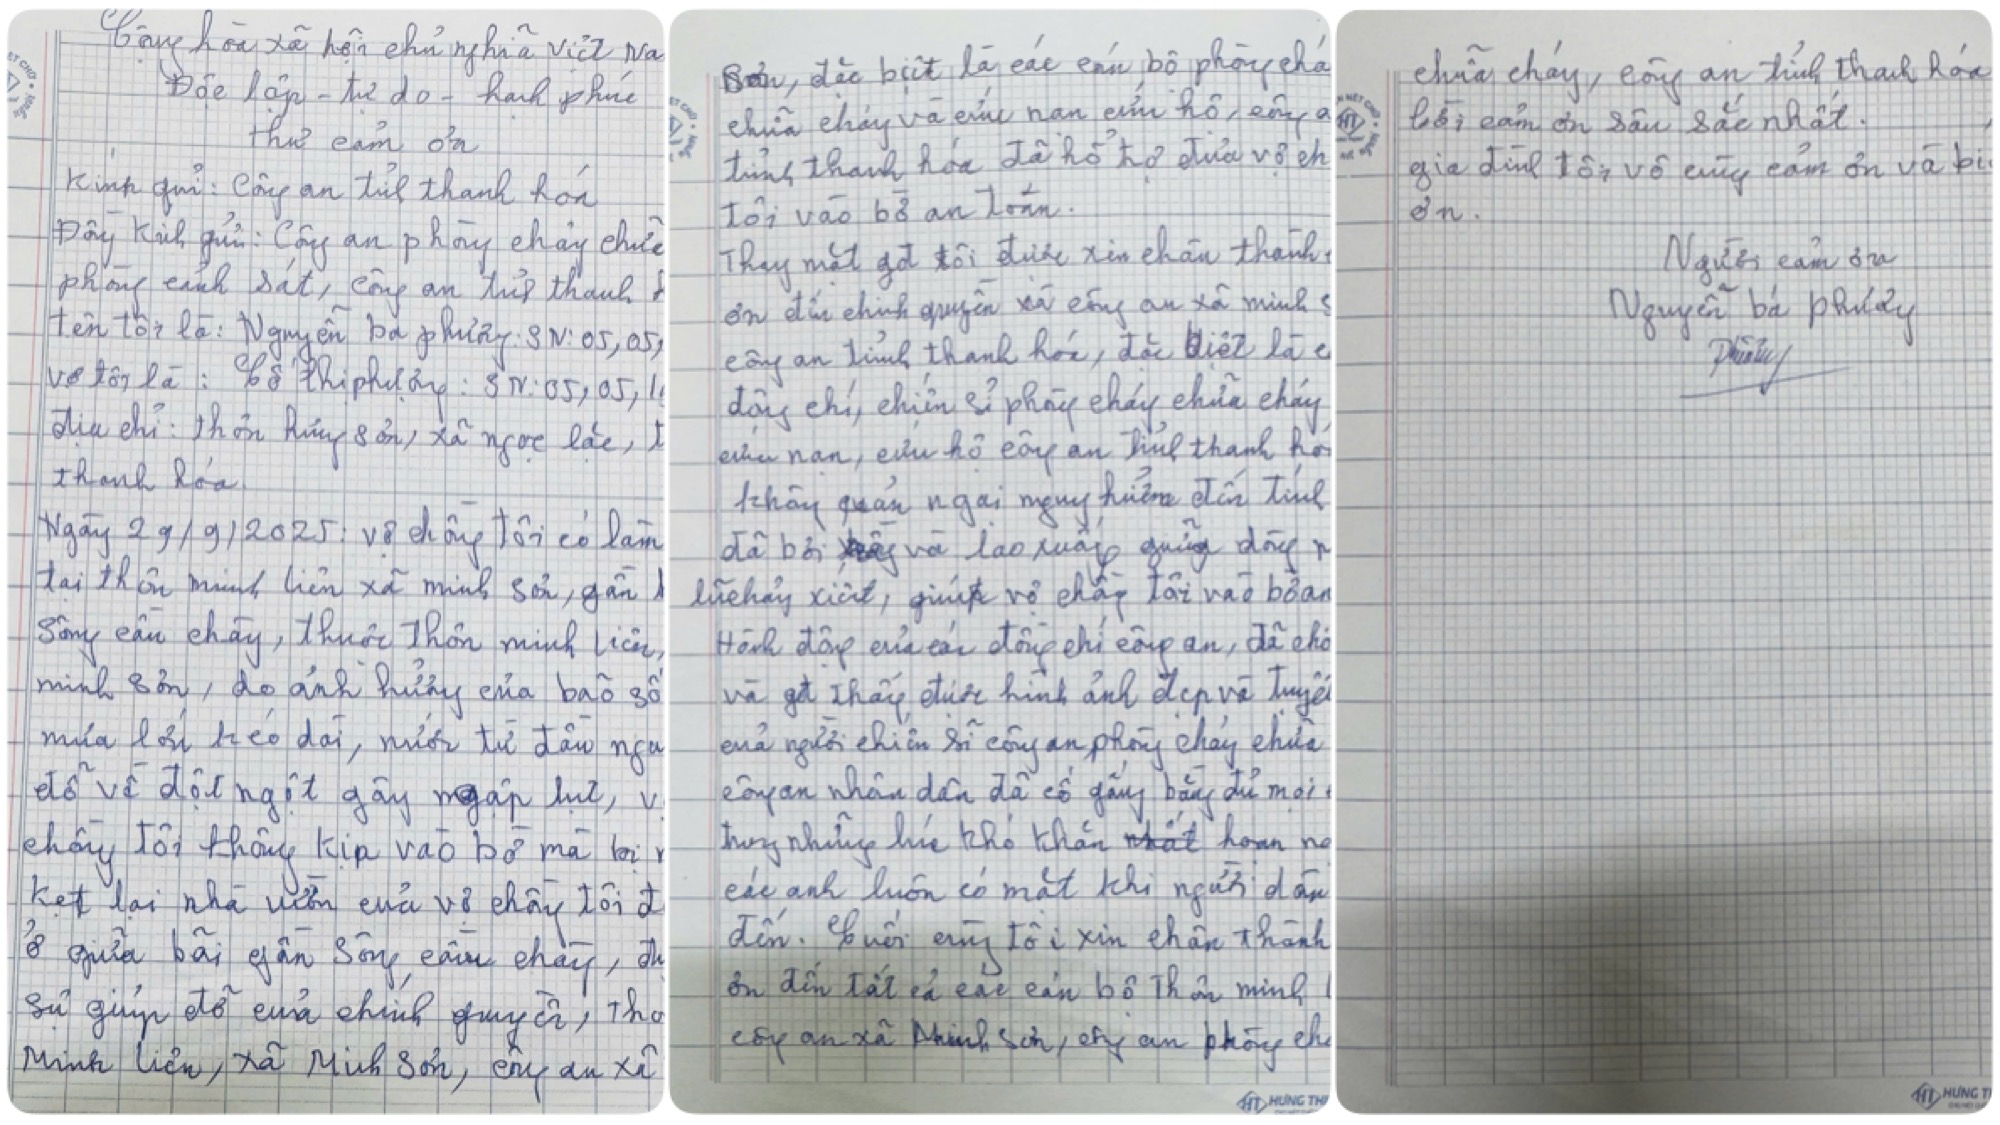 Cộng hòa xã hội chủ nghĩa việt na
Độc lập - tự do - hạnh phúc
thư cảm ơn
Kính gửi: Công an tỉnh thanh hóa
Đồng Kính gửi: Công an phòng cháy chữa
phòng cảnh sát, công an tỉnh thanh h
tên tôi là: Nguyễn bá phương: SN: 05, 05,
vợ tôi là: thị phượng: SN: 05, 05, 1
địa chỉ: thôn hưng sơn, xã ngọc lặc, t
thanh hóa.
Ngày 29/9/2025: vợ chồng tôi có làm
tại thôn minh liên xã minh sơn, gần
sông cầu chày, thuộc thôn minh liên,
minh sơn, do ảnh hưởng của bão số
mưa lớn kéo dài, nước từ đầu ngu
đổ về đột ngột gây ngập lụt, v
chồng tôi không kịp vào bờ mà bị
kẹt lại nhà vườn của vợ chồng tôi đ
ở giữa bãi gần sông cầu chày, đư
sự giúp đỡ của chính quyền, thô
Minh liên, xã Minh Sơn, công an xã
Sơn, đặc biệt là các cán bộ phòng chá
chữa cháy và cứu nạn cứu hộ, công a
tỉnh thanh hóa đã hổ trợ đưa vợ ch
tôi vào bờ an toàn.
Thay mặt gđ tôi được xin chân thành
ơn đến chính quyền xã công an xã minh s
công an tỉnh thanh hóa, đặc biệt là c
đồng chí, chiến sỉ phòng cháy chữa cháy
cứu nạn, cứu hộ công an tỉnh thanh hó
không quản ngại nguy hiểm đến tính
đã bơi và lao xuống giữa dòng n
lũ chảy xiết, giúp vợ chồng tôi vào bờ an
Hành động của các đồng chí công an, đã cho
và gđ thấy được hình ảnh đẹp và tuyệ
của người chiến sĩ công an phòng cháy chữa
công an nhân dân đã cố gắng bằng đủ mọi
trong những lúc khó khăn hoạn nạ
các anh luôn có mặt khi người dân
đến. Cuối cùng tôi xin chân thành
ơn đến tất cả các cán bộ thôn minh l
công an xã Minh Sơn, công an phòng chá
chữa cháy, công an tỉnh thanh hóa
lời cảm ơn sâu sắc nhất.
gia đình tôi vô cùng cảm ơn và bi
ơn.
Người cảm ơn
Nguyễn bá phương
HƯNG TH
HƯNG T